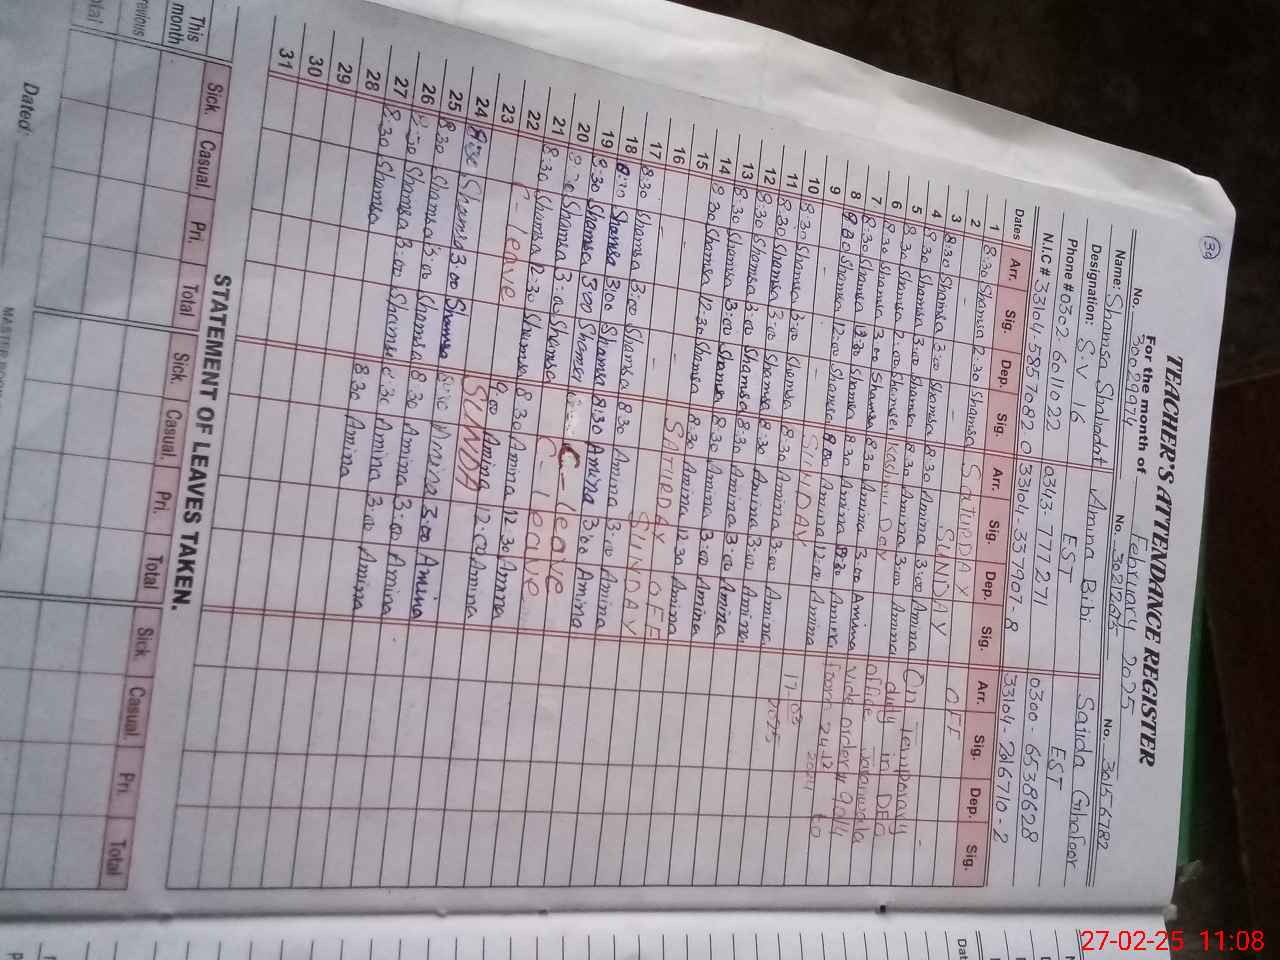 30
TEACHER'S ATTENDANCE REGISTER
For the month of February 2025
No. 30029974 No. 3021265 No. 30156782
Name: Shamsa Shahadat Amina Bibi Sajida Ghafoor
Designation: S.V 16 EST EST
Phone # 0302-6011022 0343-7771271 0300-6538628
N.I.C # 33104-337907-8 33104-2616710-2
Dates Arr. Sig. Dep. Sig. Arr. Sig. Dep. Sig. Arr. Sig. Dep. Sig.
1 8:30 Shamsa 2:30 Shamsa SATURDAY OFF
2 - - - SUNDAY
3 8:30 Shamsa 3:00 Shamsa 8:30 Amina 3:00 Amina On Temporary
4 8:30 Shamsa 3:00 Shamsa 8:30 Amina 3:00 Amina duty in DEO
5 8:30 Shamsa 2:00 Shamsa Kashmir Day office
6 8:30 Shamsa 3:00 Shamsa 8:30 Amina 3:00 Amina vide order # 90/4
7 8:30 Shamsa 12:30 Shamsa 8:30 Amina 12:30 Amina from 24-12-2024 to
8 8:30 Shamsa 12:00 Shamsa 8:30 Amina 12:00 Amina
9 - - SUNDAY 17-03-2025
10 8:30 Shamsa 3:00 Shamsa 8:30 Amina 3:00 Amina
11 8:30 Shamsa 3:00 Shamsa 8:30 Amina 3:00 Amina
12 8:30 Shamsa 3:00 Shamsa 8:30 Amina 3:00 Amina
13 8:30 Shamsa 3:00 Shamsa 8:30 Amina 3:00 Amina
14 8:30 Shamsa 12:30 Shamsa 8:30 Amina 12:30 Amina
15 - - - SATIRDAY OFF
16 - - - SUNDAY
17 8:30 Shamsa 3:00 Shamsa 8:30 Amina 3:00 Amina
18 8:30 Shamsa 3:00 Shamsa 8:30 Amina 3:00 Amina
19 8:30 Shamsa 3:00 Shamsa C-leave
20 8:30 Shamsa 3:00 Shamsa C-leave
21 8:30 Shamsa 2:30 Shamsa 8:30 Amina 12:30 Amina
22 C-leave 9:00 Amina 12:00 Amina
23 SUNDAY
24 Shamsa 3:00 Shamsa Amina 3:00 Amina
25 8:30 Shamsa 3:00 Shamsa 8:30 Amina 3:00 Amina
26 8:30 Shamsa 3:00 Shamsa 8:30 Amina 3:00 Amina
27 8:30 Shamsa 8:30 Amina
28
29
30
31
STATEMENT OF LEAVES TAKEN.
Sick. Casual. Pri. Total Sick. Casual. Pri. Total Sick. Casual. Pri. Total
This month
Previous
Total
Dated:
27-02-25 11:08